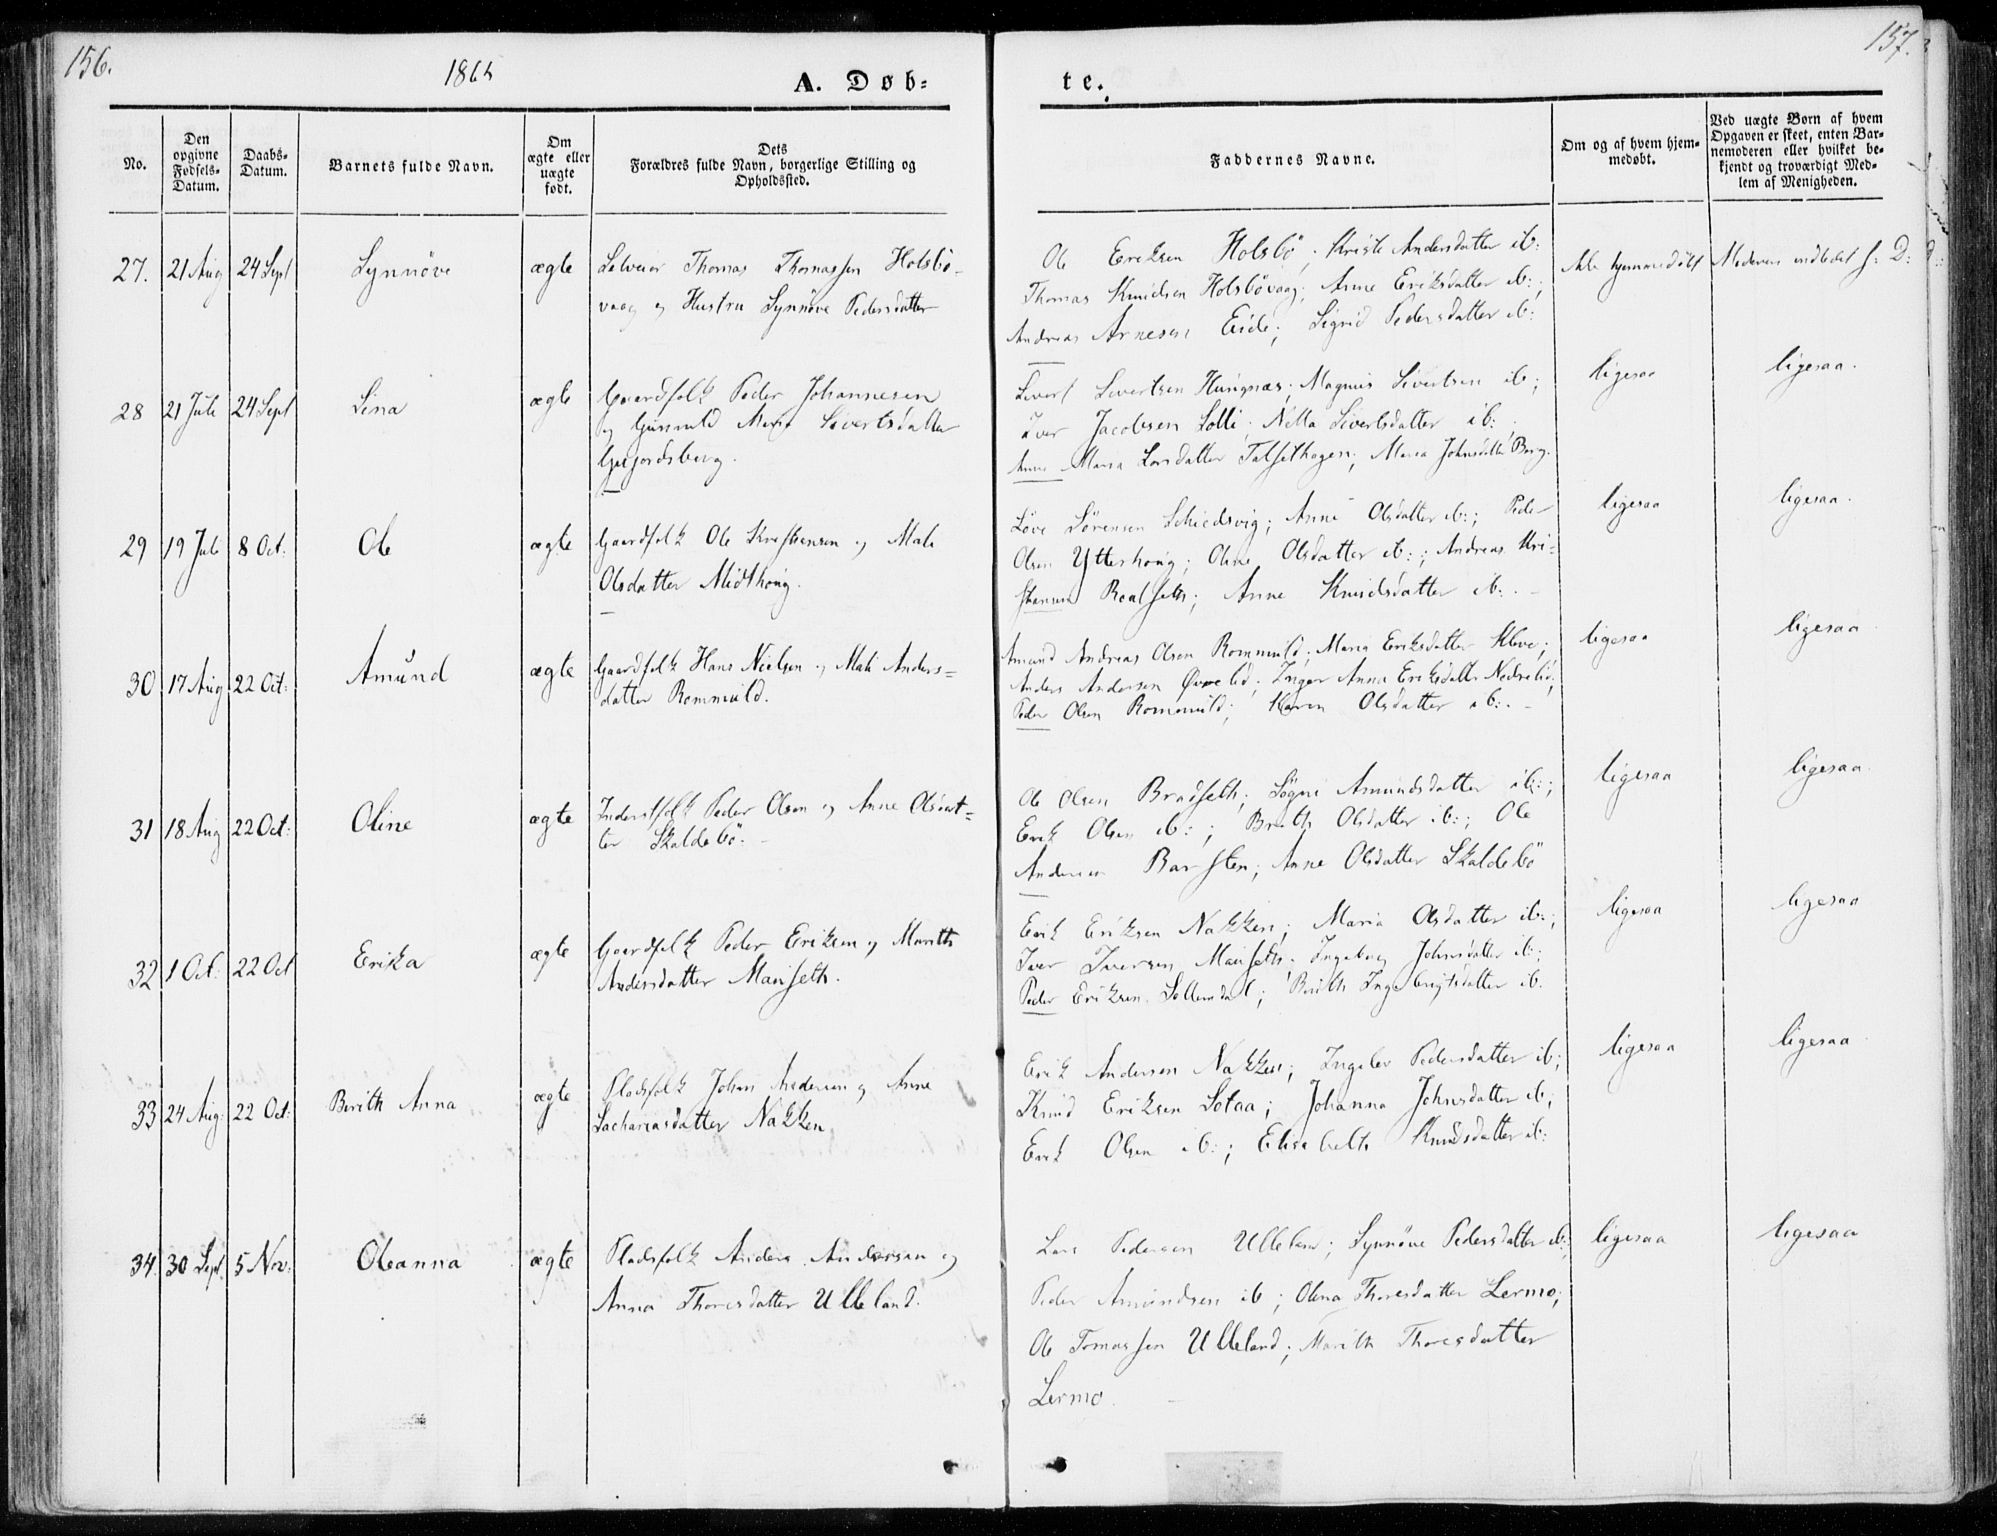 156.
157.
A. Døb=
te.
No.
Den opgivne Fødsels-Datum.
Daabs-Datum.
Barnets fulde Navn.
Om ægte eller uægte født.
Dets Forældres fulde Navn, borgerlige Stilling og Opholdssted.
Faddernes Navne.
Om og af hvem hjemmedøbt.
Ved uægte Børn af hvem Opgaven er skeet, enten Barnemoderen eller hvilket bekjendt og troværdigt Medlem af Menigheden.
27. 21 Aug 24 Sept Synnöve ægte
Selveier Thomas Thomassen Holsbö-
vaag og Hustru Synnöve Pedersdatter
Ole Eriksen Holsbö; Andersdatter ib:
Thomas Knudsen Holsbövaag; Anne Eriksdatter ib:;
Andreas Arnesen Eide; Sigrid Pedersdatter ib:
Ikke hjemmedöbt
Moderen indledet s: D:
28 21 Juli 24 Sept Sina ægte
Gaardfolk Peder Johannesen
og Gunnild Maria Sivertsdatter
Sivert Sivertsen Hungnæs; Magnus Sivertsen ib:;
Iver Jacobsen Solli; Sivertsdatter ib:;
Anne Maria Larsdatter Talsethagen; Maria Johnsdatter Berg.
ligesaa
ligesaa.
29 19 Juli 8 Oct: Ole ægte
Gaardfolk Ole Kristensen og Mali
Olsdatter Midthoug.
Sörensen; Anne Olsdatter ib:; Peder
Olsen Ytterhoug; Oline Olsdatter ib:; Andreas Kri-
stensen; Anne Knudsdatter ib:.
ligesaa
ligesaa.
30 17 Aug 22 Oct: Amund ægte
Gaardfolk Hans Nielsen og Mali Anders-
datter Rommuld.
Amund Andreas Olsen Rommuld; Maria Eriksdatter;
Anders Andersen Øvrelid; Inger Anna Eriksdatter Nedrelid;
Peder Olsen Rommuld; Karen Olsdatter ib:.
ligesaa
ligesaa
31 18 Aug 22 Oct: Oline ægte
Inderstfolk Peder Olsen og Anne Olsdat-
ter Skaldebö.
Ole Olsen Bradseth; Amundsdatter ib:;
Erik Olsen ib:; Brith Olsdatter ib:; Ole
Andersen Barsten; Anne Olsdatter Skaldebö
ligesaa
ligesaa
32 1 Oct: 22 Oct Erika ægte
Gaardfolk Peder Eriksen og Marith
Andersdatter Mauseth.
Erik Eriksen Nakken; Maria Olsdatter ib:;
Iver Iversen Mauseth; Ingeborg Johnsdatter ib:;
Peder Eriksen; Berith Ingebrigtsdatter ib.
ligesaa
ligesaa
33 24 Aug: 22 Oct: Berith Anna ægte
Pladsfolk Johan Andersen og Anne
Sachariasdatter Nakken
Erik Andersen Nakken; Pedersdatter ib;
Knud Eriksen Sotaa; Johanna Johnsdatter ib;
Erik Olsen ib:; Elisabeth Knudsdatter ib:
ligesaa
ligesaa
34 30 Sept. 5 Nov: Oleanna ægte
Pladsfolk Anders Andersen og
Anna Thoresdatter Ulleland.
Lars Pedersen Ulleland; Synnöve Pedersdatter ib;
Peder Amundsen ib; Olena Thoresdatter Lermo;
Ole Tomassen Ulleland; Marith Thoresdatter
Lermo.
ligesaa
ligesaa